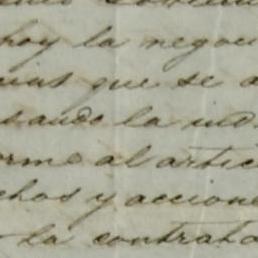 hoy la negoci
cias que se a
sando la ind
orme al artic
chos y accione
la contrata